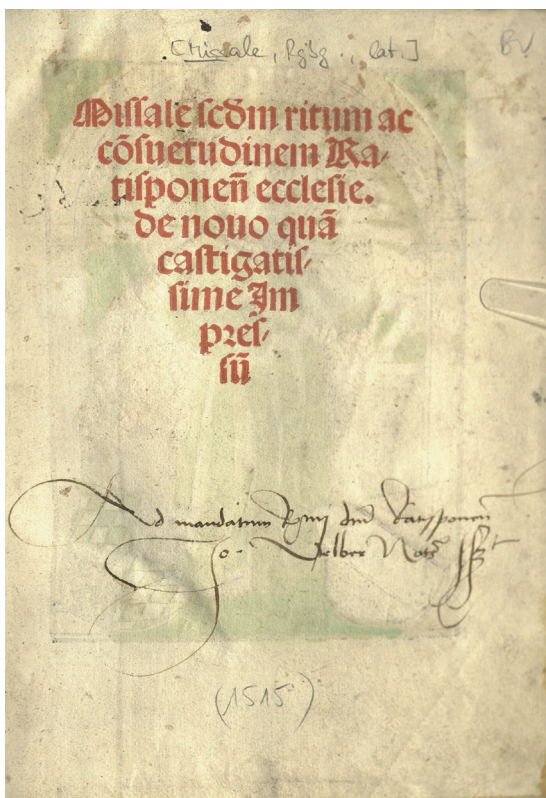 [Missale, Rgbg., lat.]
BV
Missale scďm ritum ac
cõsuetudinem Ra⸗
tisponeñ ecclesie.
de nouo quã
castigatis⸗
sime Im
pres⸗
sũ
Ad mandatum Rmi dni Ratisponen
Jo. Notz sszt
(1515)